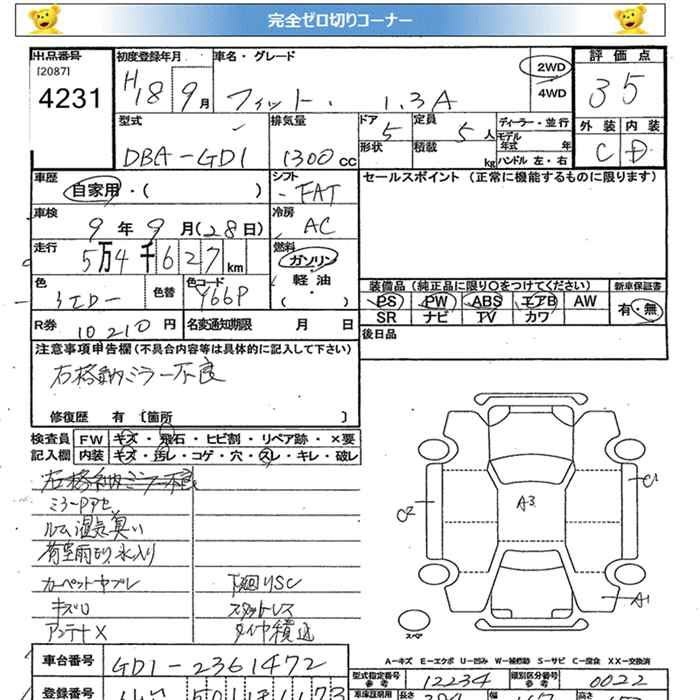 完全ゼロ切りコーナー
出品番号 初度登録年月 車名・グレード 2WD 評価点
[2087]
4231 H18 9月 フィット. 1.3A 4WD 35
型式 排気量 ドア 5 定員 5人 ディーラー・並行 外装 内装
DBA-GD1 1300cc 形状 積載 kg モデル年式 年 C D
ハンドル 左・右
車歴 シフト セールスポイント (正常に機能するものに限ります)
自家用・( ) FAT
車検 9年9月(28日) 冷房 AC
走行 5万4千627km 燃料 ガソリン・軽油・( )
色 シルバー 色替 色コード Y66P
装備品 (純正品に限り○をつけてください) 新車保証書
PS PW ABS エアB AW 有・無
SR ナビ TV カワ
R券 10210円 名変通知期限 月 日 後日品
注意事項申告欄 (不具合内容等は具体的に記入して下さい)
右格納ミラー不良
修復歴 有 〔箇所 〕
検査員 FW キズ・飛石・ヒビ割・リペア跡・×要
記入欄 内装 キズ・汚レ・コゲ・穴・スレ・キレ・破レ
右格納ミラー不良
ルーム湿気臭い
荷室雨もり、水入り
カーペット 下廻りSC
キズ スタットレス
アンテナX タイヤ積込
A3
C2
C1
A1
スペア
A-キズ E-エクボ U-凹み W-補修跡 S-サビ C-腐食 XX-交換済
車台番号 GD1-2361472 型式指定番号 参考 12234 類別区分番号 参考 0022
登録番号 車庫証明用 長さ 幅 高さ